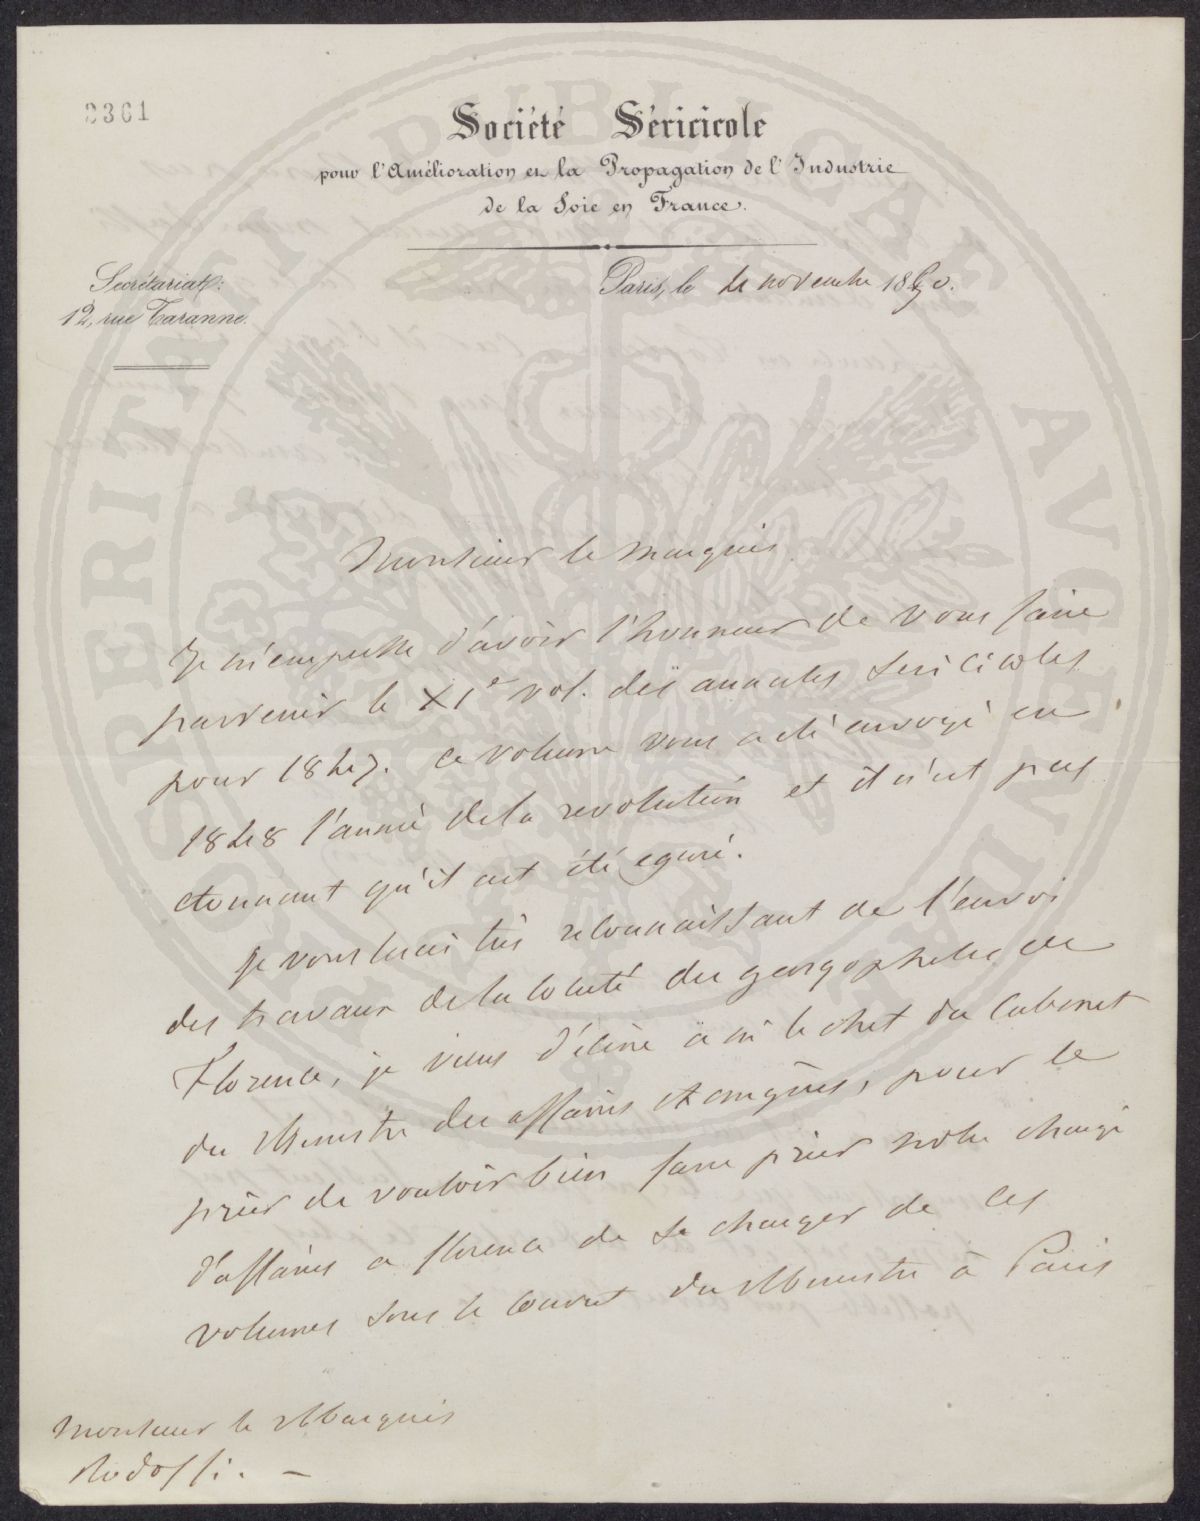 2361
Société Séricicole
pour l'Amélioration et la Propagation de l'Industrie
de la Soie en France.
Secrétariat:
12, rue Taranne.
Paris, le 4 novembre 1850.
Monsieur le marquis
Je m'empresse d'avoir l'honneur de vous faire
parvenir le XIe vol. des annales sericicoles
pour 1847. ce volume vous a été envoyé en
1848 l'année de la revolution et il n'est pas
etonnant qu'il ait été egaré.
je vous serai très reconnaissant de l'envoi
des travaux de la société des georgophiles de
Florence, je viens d'écrire à m le chef du Cabinet
du Ministre des affaires etrangères, pour le
prier de vouloir bien faire prier notre chargé
d'affaires a florence de se charger de ces
volumes sous le couvert du Ministre à Paris
Monsieur le Marquis
Ridolfi. –
SPERITATI PUBLICAE AUGENDAE